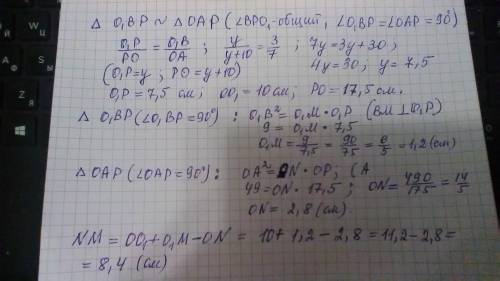 △ O₁BP ~ △OAP (∠BPO₁-общий, ∠O₁BP=∠OAP=90°)
O₁P/PO = O₁B/OA ; y/(y+10) = 3/7 ; 7y = 3y+30 ;
(O₁P=y ; PO=y+10) 4y=30; y=7,5
O₁P = 7,5 см; OO₁=10см; PO=17,5 см.
△ O₁BP (∠O₁BP=90°) : O₁B² = O₁M · O₁P (BM ⊥ O₁P)
9 = O₁M · 7,5
O₁M = 9/7,5 = 90/75 = 6/5 = 1,2 (см)
△ OAP (∠OAP=90°) : OA² = ON · OP; (A
49 = ON · 17,5 ; ON = 490/175 = 14/5
ON = 2,8 (см)
NM = OO₁ + O₁M - ON = 10 + 1,2 - 2,8 = 11,2 - 2,8 =
= 8,4 (см)